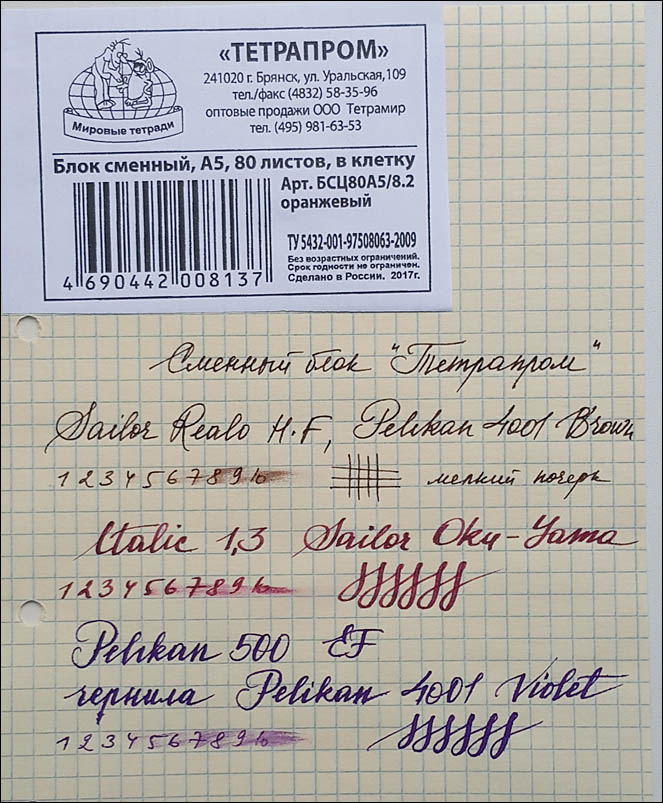 «ТЕТРАПРОМ»
241020 г. Брянск, ул. Уральская,109
тел./факс (4832) 58-35-96
оптовые продажи ООО Тетрамир
тел. (495) 981-63-53
Мировые тетради
Блок сменный, А5, 80 листов, в клетку
Арт. БСЦ80А5/8.2
оранжевый
ТУ 5432-001-97508063-2009
Без возрастных ограничений.
Срок годности не ограничен.
Сделано в России. 2017г.
4 690442 008137
Сменный блок "Тетрапром"
Sailor Realo H-F, Pelikan 4001 Brown
1 2 3 4 5 6 7 8 9 10
мелкий почерк
Italic 1,3 Sailor Oku-Yama
1 2 3 4 5 6 7 8 9 10
Pelikan 500 EF
чернила Pelikan 4001 Violet
1 2 3 4 5 6 7 8 9 10